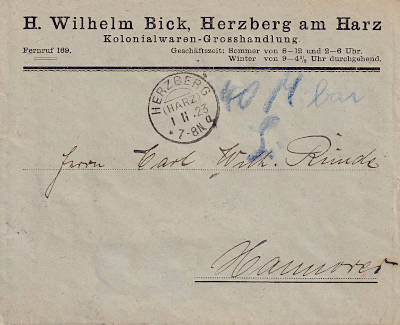 H. Wilhelm Bick, Herzberg am Harz
Kolonialwaren-Grosshandlung.
Fernruf 169.
Geschäftszeit: Sommer von 8–12 und 2–6 Uhr.
Winter von 9–4½ Uhr durchgehend.
HERZBERG
(HARZ)
1 11.23
* 7-8N a
40 M bar
Herrn Carl Wilh. Runde
Hannover